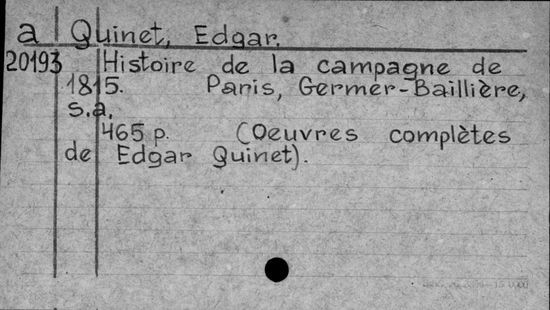 a Quinet, Edgar.
20193 Histoire de la campagne de
1815. Paris, Germer-Baillière,
s.a.
465 p. (Oeuvres complètes
de Edgar Quinet).